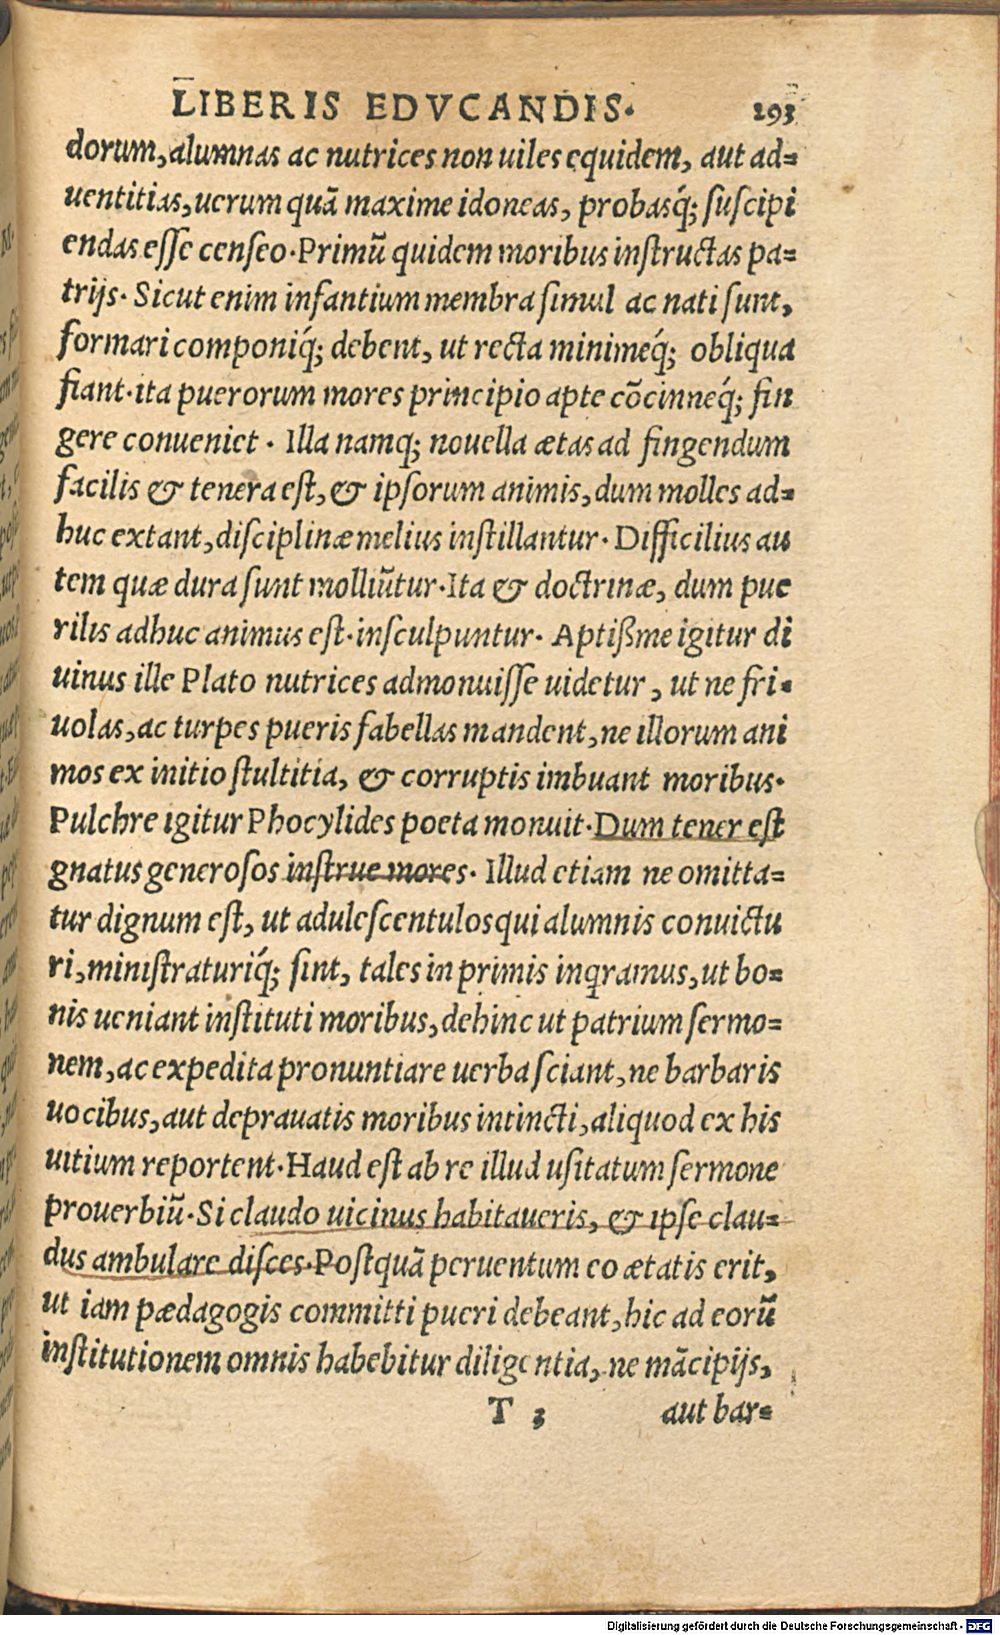 LIBERIS EDVCANDIS. 293
dorum, alumnas ac nutrices non uiles equidem, aut ad=
uentitias, uerum quā maxime idoneas, probasq́; ſuſcipi
endas eſſe cenſeo. Primū quidem moribus inſtructas pa=
trijs. Sicut enim infantium membra ſimul ac nati ſunt,
formari componiq́; debent, ut recta minimeq́; obliqua
fiant. ita puerorum mores principio apte cōcinneq́; fin
gere conueniet. Illa namq; nouella ætas ad fingendum
facilis & tenera eſt, & ipſorum animis, dum molles ad=
huc extant, diſciplinæ melius inſtillantur. Difficilius au
tem quæ dura ſunt molliūtur. Ita & doctrinæ, dum pue
rilis adhuc animus eſt. inſculpuntur. Aptißme igitur di
uinus ille Plato nutrices admonuiſſe uidetur, ut ne fri=
uolas, ac turpes pueris fabellas mandent, ne illorum ani
mos ex initio ſtultitia, & corruptis imbuant moribus.
Pulchre igitur Phocylides poeta monuit. Dum tener eſt
gnatus generoſos inſtrue mores. Illud etiam ne omitta=
tur dignum eſt, ut aduleſcentulos qui alumnis conuictu
ri, miniſtraturiq́; ſint, tales in primis inqramus, ut bo=
nis ueniant inſtituti moribus, dehinc ut patrium ſermo=
nem, ac expedita pronuntiare uerba ſciant, ne barbaris
uocibus, aut deprauatis moribus intincti, aliquod ex his
uitium reportent. Haud eſt ab re illud uſitatum ſermone
prouerbiū. Si claudo uicinus habitaueris, & ipſe clau=
dus ambulare diſces. Poſtquā peruentum eo ætatis erit,
ut iam pædagogis committi pueri debeant, hic ad eorū
inſtitutionem omnis habebitur diligentia, ne mācipijs,
T 3 aut bar=
Digitalisierung gefördert durch die Deutsche Forschungsgemeinschaft - DFG